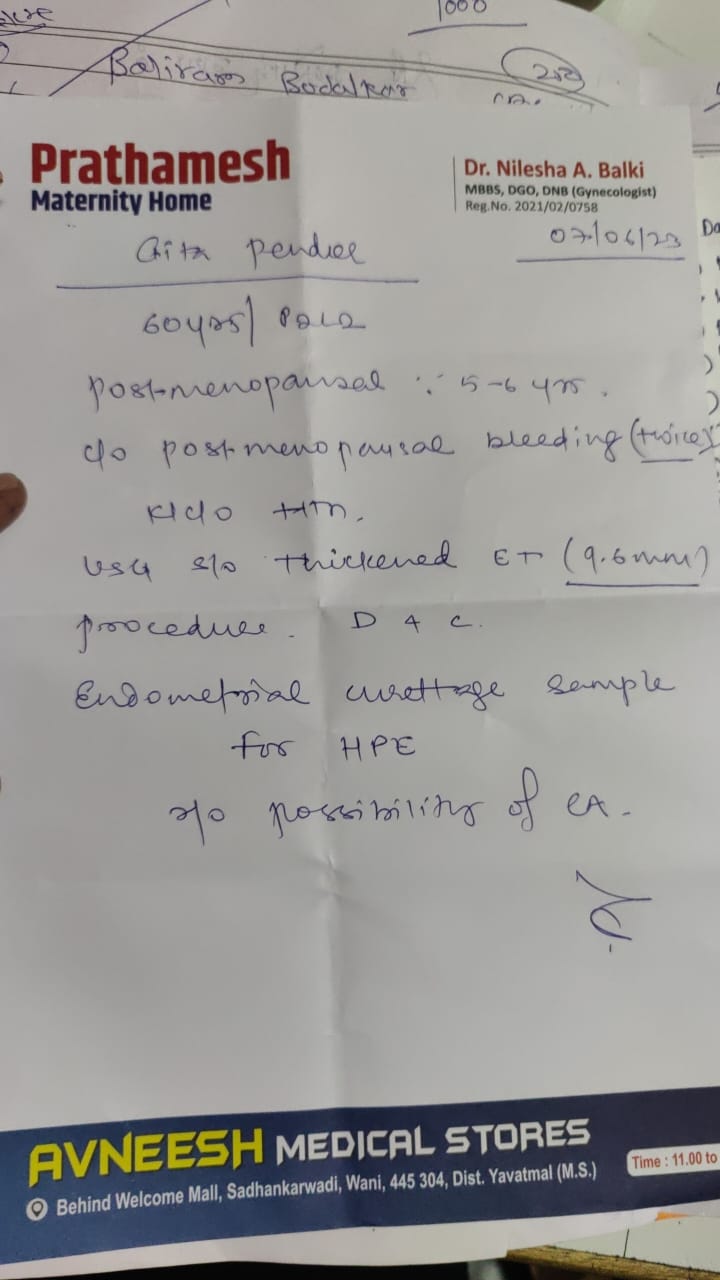 1000
Baliram Bodalkar
Prathamesh
Maternity Home
Dr. Nilesha A. Balki
MBBS, DGO, DNB (Gynecologist)
Reg.No. 2021/02/0758
07/06/23
Gita
60yrs/ P2L2
postmenopausal ∵ 5-6 yrs.
c/o postmenopausal bleeding (twice)
K/c/o HTN.
USG s/o thickened ET (9.6mm)
procedure. D & C.
Endometrial curettage sample
for HPE
r/o possibility of CA.
AVNEESH MEDICAL STORES
Behind Welcome Mall, Sadhankarwadi, Wani, 445 304, Dist. Yavatmal (M.S.)
Time : 11.00 to